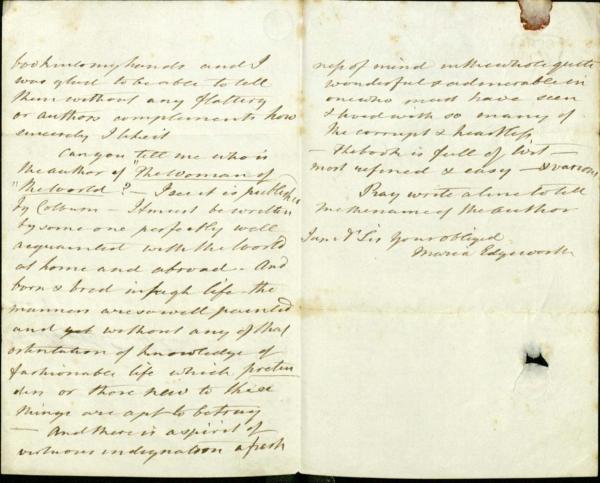 book into my hands and I
was glad to be able to tell
them without any flattery
or authors complements how
sincerely I like it
Can you tell me who is
the author of "The Woman of
"the World"? — I see it is published
by Colburn — It must be written
by some one perfectly well
acquainted with the World
at home and abroad — And
born & bred in high life — the
manners are so well painted
and yet without any of that
ostentation of knowledge of
fashionable life which preten
ders or those new to these
things are apt to betray
— And there is a spirit of
virtuous indignation a fresh
ness of mind in the whole quite
wonderful & admirable in
one who must have seen
& lived with so many of
the corrupt & heartless
— the book is full of wit —
most refined & easy — & various
Pray write a line to tell
me the name of the author
I am Dr Sir Your obliged
Maria Edgeworth